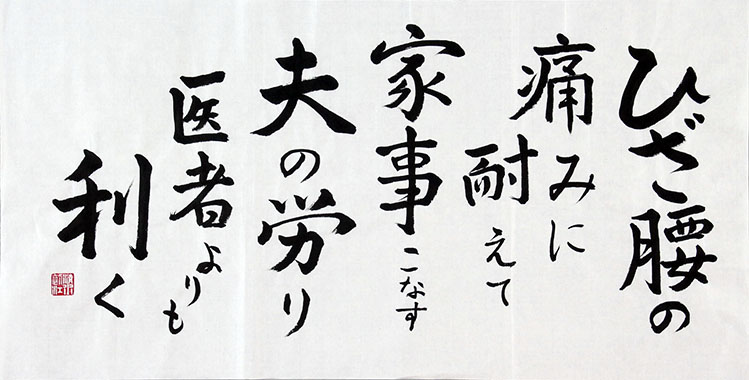 ひざ腰の
痛みに
耐えて
家事こなす
夫の労り
医者よりも
利く